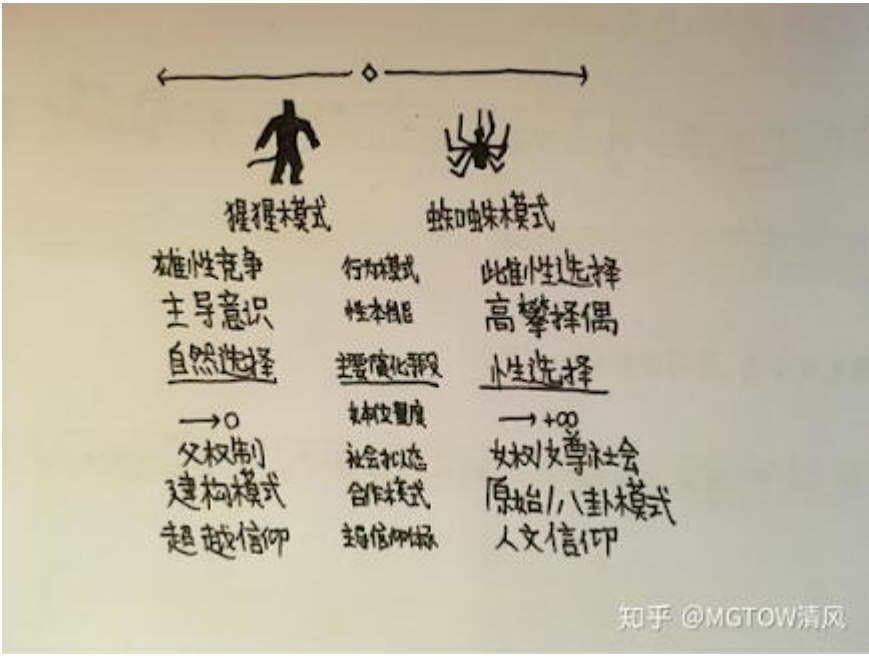 猩猩模式 蜘蛛模式
雄性竞争 行为模式 雌性选择
主导意识 性本能 高攀择偶
自然选择 主要演化手段 性选择
→0 女本位量度 →+∞
父权制 社会拟态 女权/女尊社会
建构模式 合作模式 原始/八卦模式
超越信仰 主导信仰体系 人文信仰
知乎 @MGTOW清风